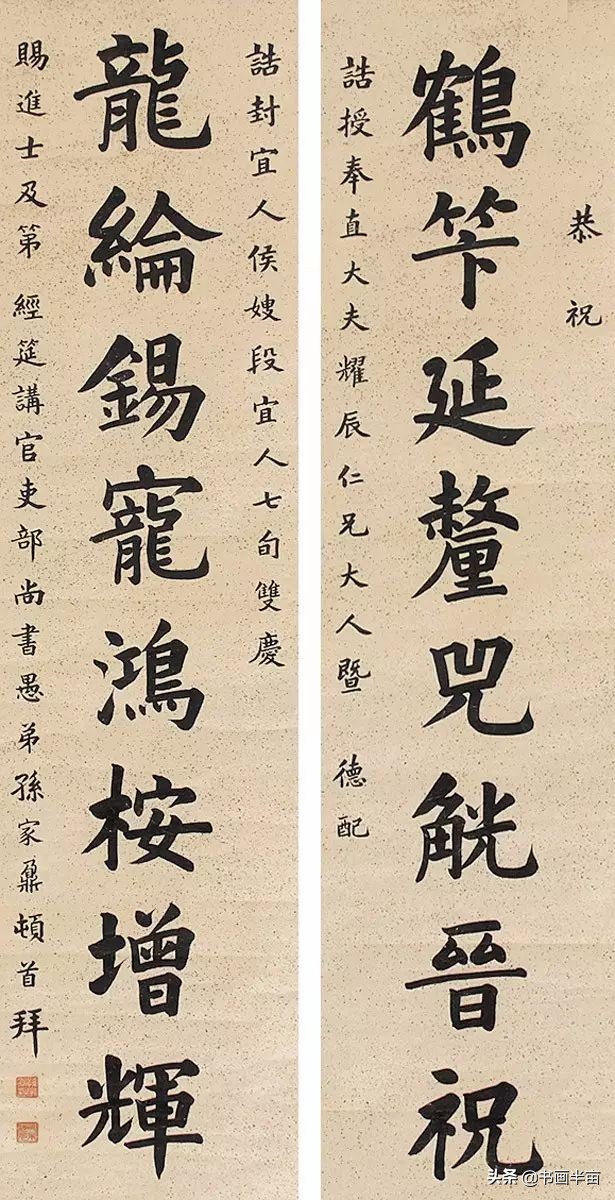 恭祝
鶴笇延釐兕觥晉祝
誥授奉直大夫耀辰仁兄大人暨 德配
誥封宜人侯嫂段宜人七旬雙慶
龍綸錫寵鴻桉增輝
賜進士及第 經筵講官吏部尚書愚弟孫家鼐頓首拜
头条 @书画半亩